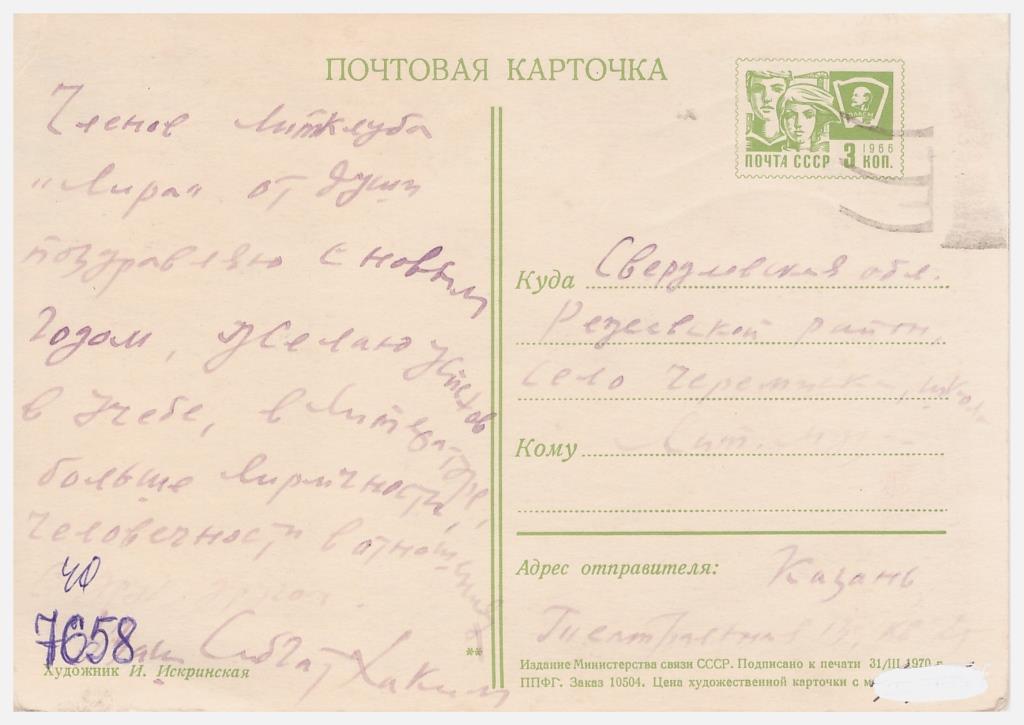 ПОЧТОВАЯ КАРТОЧКА
ПОЧТА СССР 3 КОП.
1966
ВЛКСМ
Членов Литклуба
"Лира" от души
поздравляю с новым
годом, желаю успехов
в учебе, в литературе,
больше лиричности,
человечности в отношениях
друг
40
7658
Ваш Сибгат Хаким
Художник И. Искринская
**
Куда Свердловская обл.
Режевской район,
село Черемисска, школа
Кому Лит.
Адрес отправителя: Казань
Театральная
Издание Министерства связи СССР. Подписано к печати 31/III 1970 г.
ППФГ. Заказ 10504. Цена художественной карточки с м